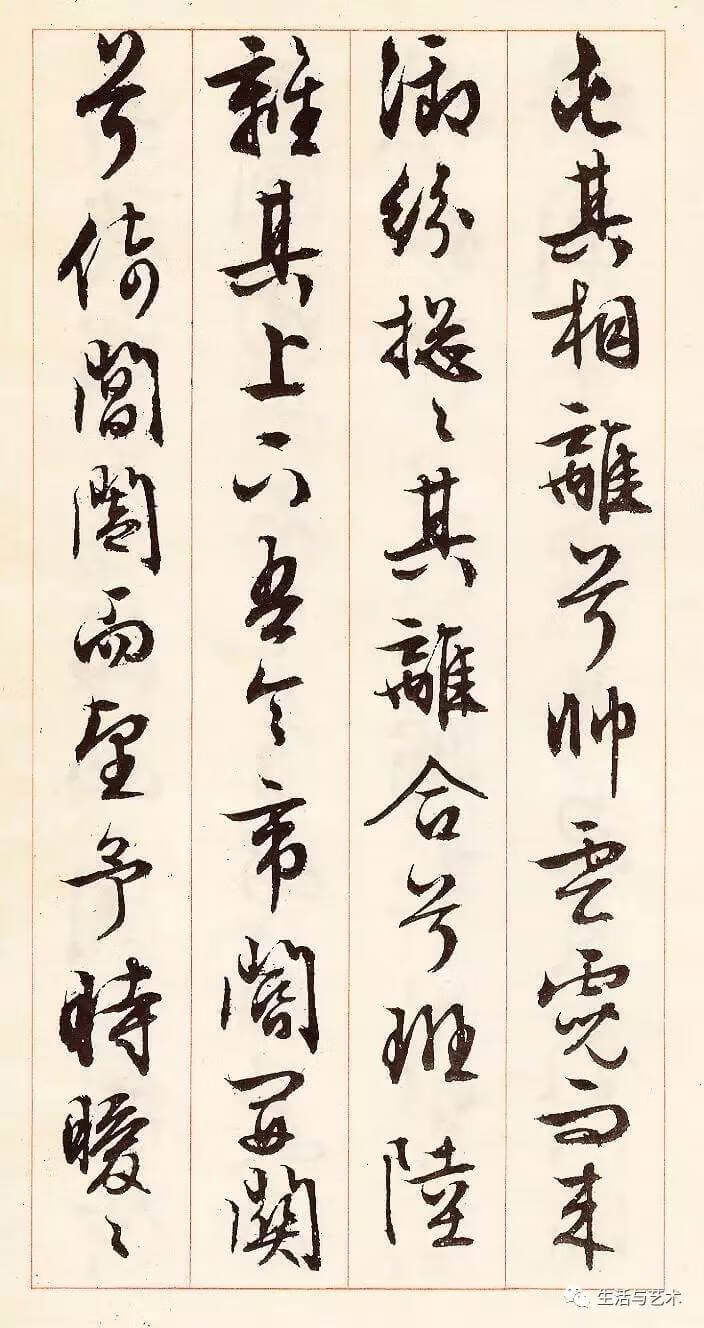 屯其相離兮帥雲霓而来
御紛揔々其離合兮班陸
離其上下吾令帝閽開關
兮倚閶闔而望予時曖々
生活与艺术